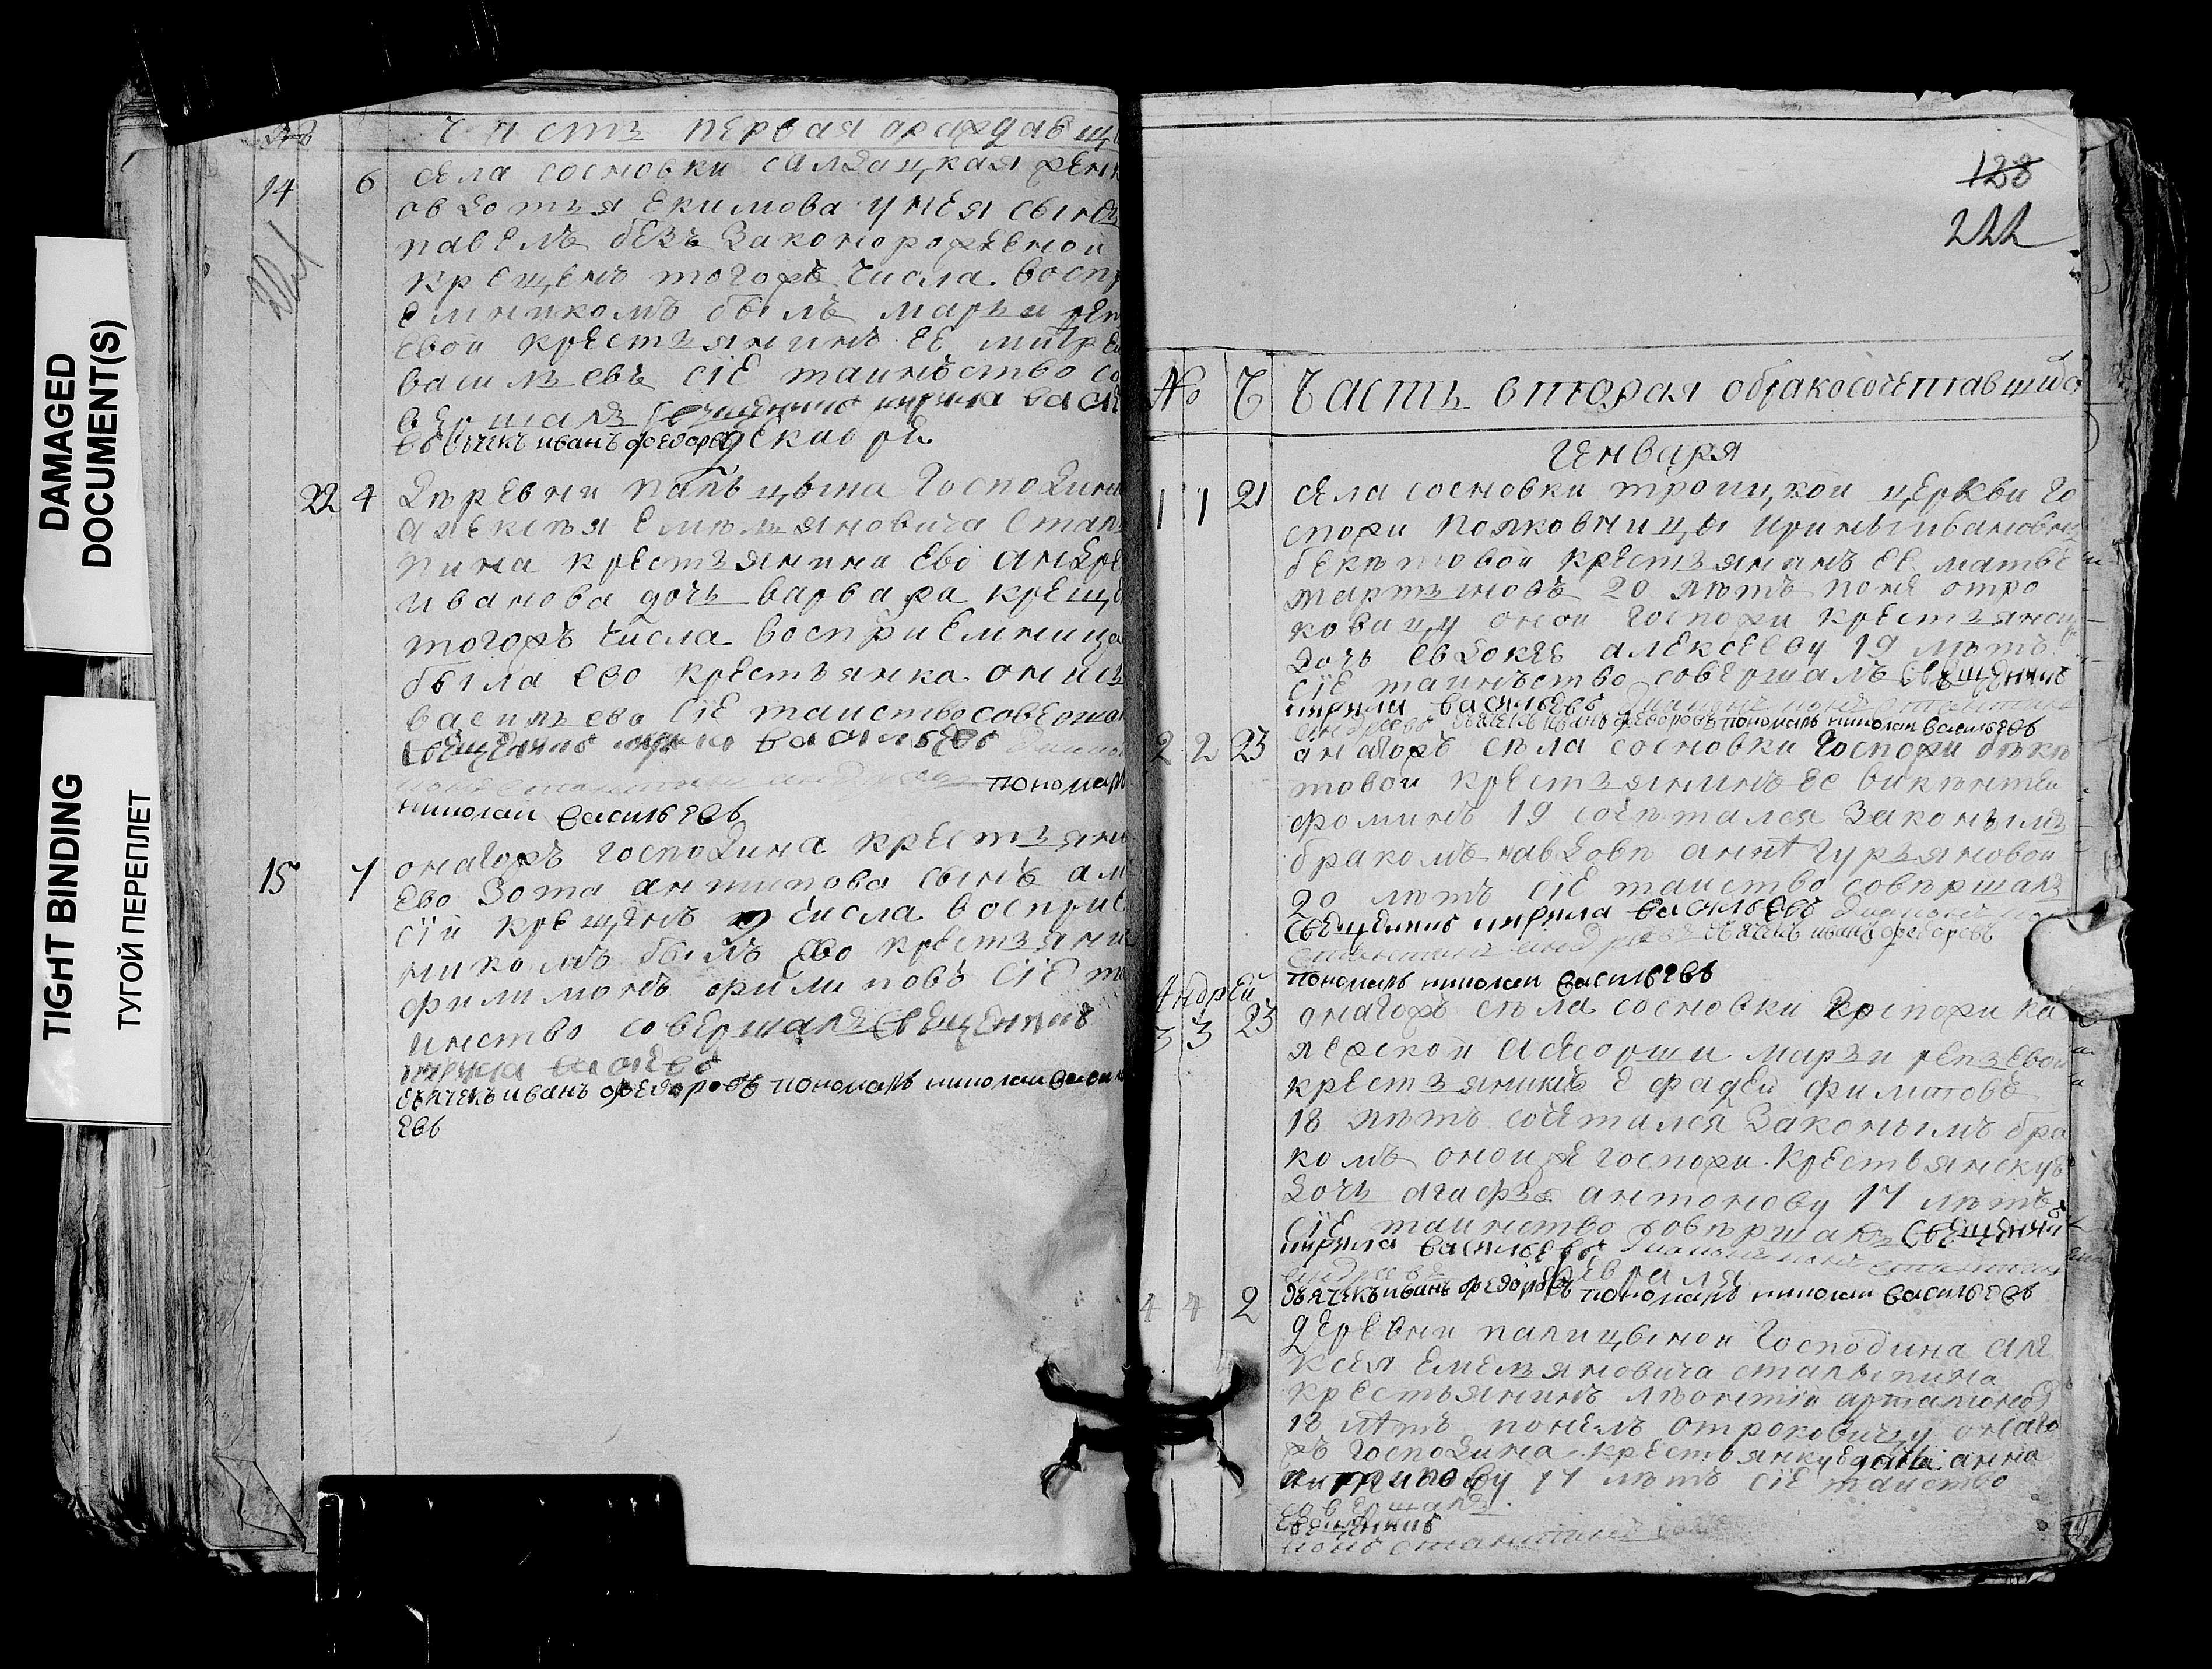 DAMAGED
DOCUMENT(S)
TIGHT BINDING
ТУГОЙ ПЕРЕПЛЕТ
Часть первая ораждавщ
14 6 села сосновки салдацкая жен
овдотья екимова унея сынъ
павелъ безъ законорожденой
крещенъ тогожъ числа воспр
емникомъ былъ марьи реп
евой крестьянинъ ее митре
василъевъ сіе таинъство со
вершалъ священникъ кирила васил
дьячекъ иванъ федоровъ
декабре
22 4 Деревни палъцына Господина
алексея емельяновича Стал
пина крестьянина ево андре
иванова дочь варвара креще
тогожъ числа восприемница
была ево крестъянка онись
василъева сіе таиство совершал
священникъ кирила васильевъ
пономарь
николаи васильевъ
15 7 онагожъ господина крестьяни
ево Зота антипова сынъ
сіи крещенъ числа восприе
никомъ былъ ево крестьяни
филимонъ филиповъ сіе та
инство совершалъ священникъ
кирила
дьячекъ иванъ федоровъ пономарь николаи васил
евъ
128
222
№ Ч Часть вторая обракосочетавшихся
Генваря
1 1 21 села сосновки троицкой церкви го
спожи полковницы ирины ивановны
бекетовой крестьянинъ ее матве
мартыновъ 20 летъ понелъ отро
ковицу оной госпожи крестьянску
дочь евдокею алексееву 19 летъ
сіе таинъство совершалъ священникъ
кирила васильевъ
дьячекъ иванъ федоровъ пономарь николаи васильевъ
2 2 23 онагожъ села сосновки госпожи беке
товой крестьянинъ ее викентеи
фоминъ 19 сочетался законымъ
бракомъ на вдове анне гурьяновой
20 летъ сіе таиство совершалъ
священникъ кирила васильевъ
дьячекъ иванъ федоровъ
пономарь николаи васильевъ
Андрей
3 3 23 онагожъ села сосновки госпожи ка
лежской асесорши марьи репьевой
крестьянинъ е фадеи филатовъ
18 летъ сочетался законымъ бра
комъ оной же госпожи крестьянскую
дочь агафью антонову 17 летъ
сіе таинство совершалъ священни
кирила васильевъ
февраля
дьячекъ иванъ федоровъ пономарь николаи васильевъ
4 4 2 деревни палицыной господина але
ксея емельяновича сталыпина
крестьянинъ леонтіи артамоновъ
18 летъ понелъ отроковицу онаго
жъ господина крестьянку анна
17 летъ сіе таиство
совершалъ
священникъ